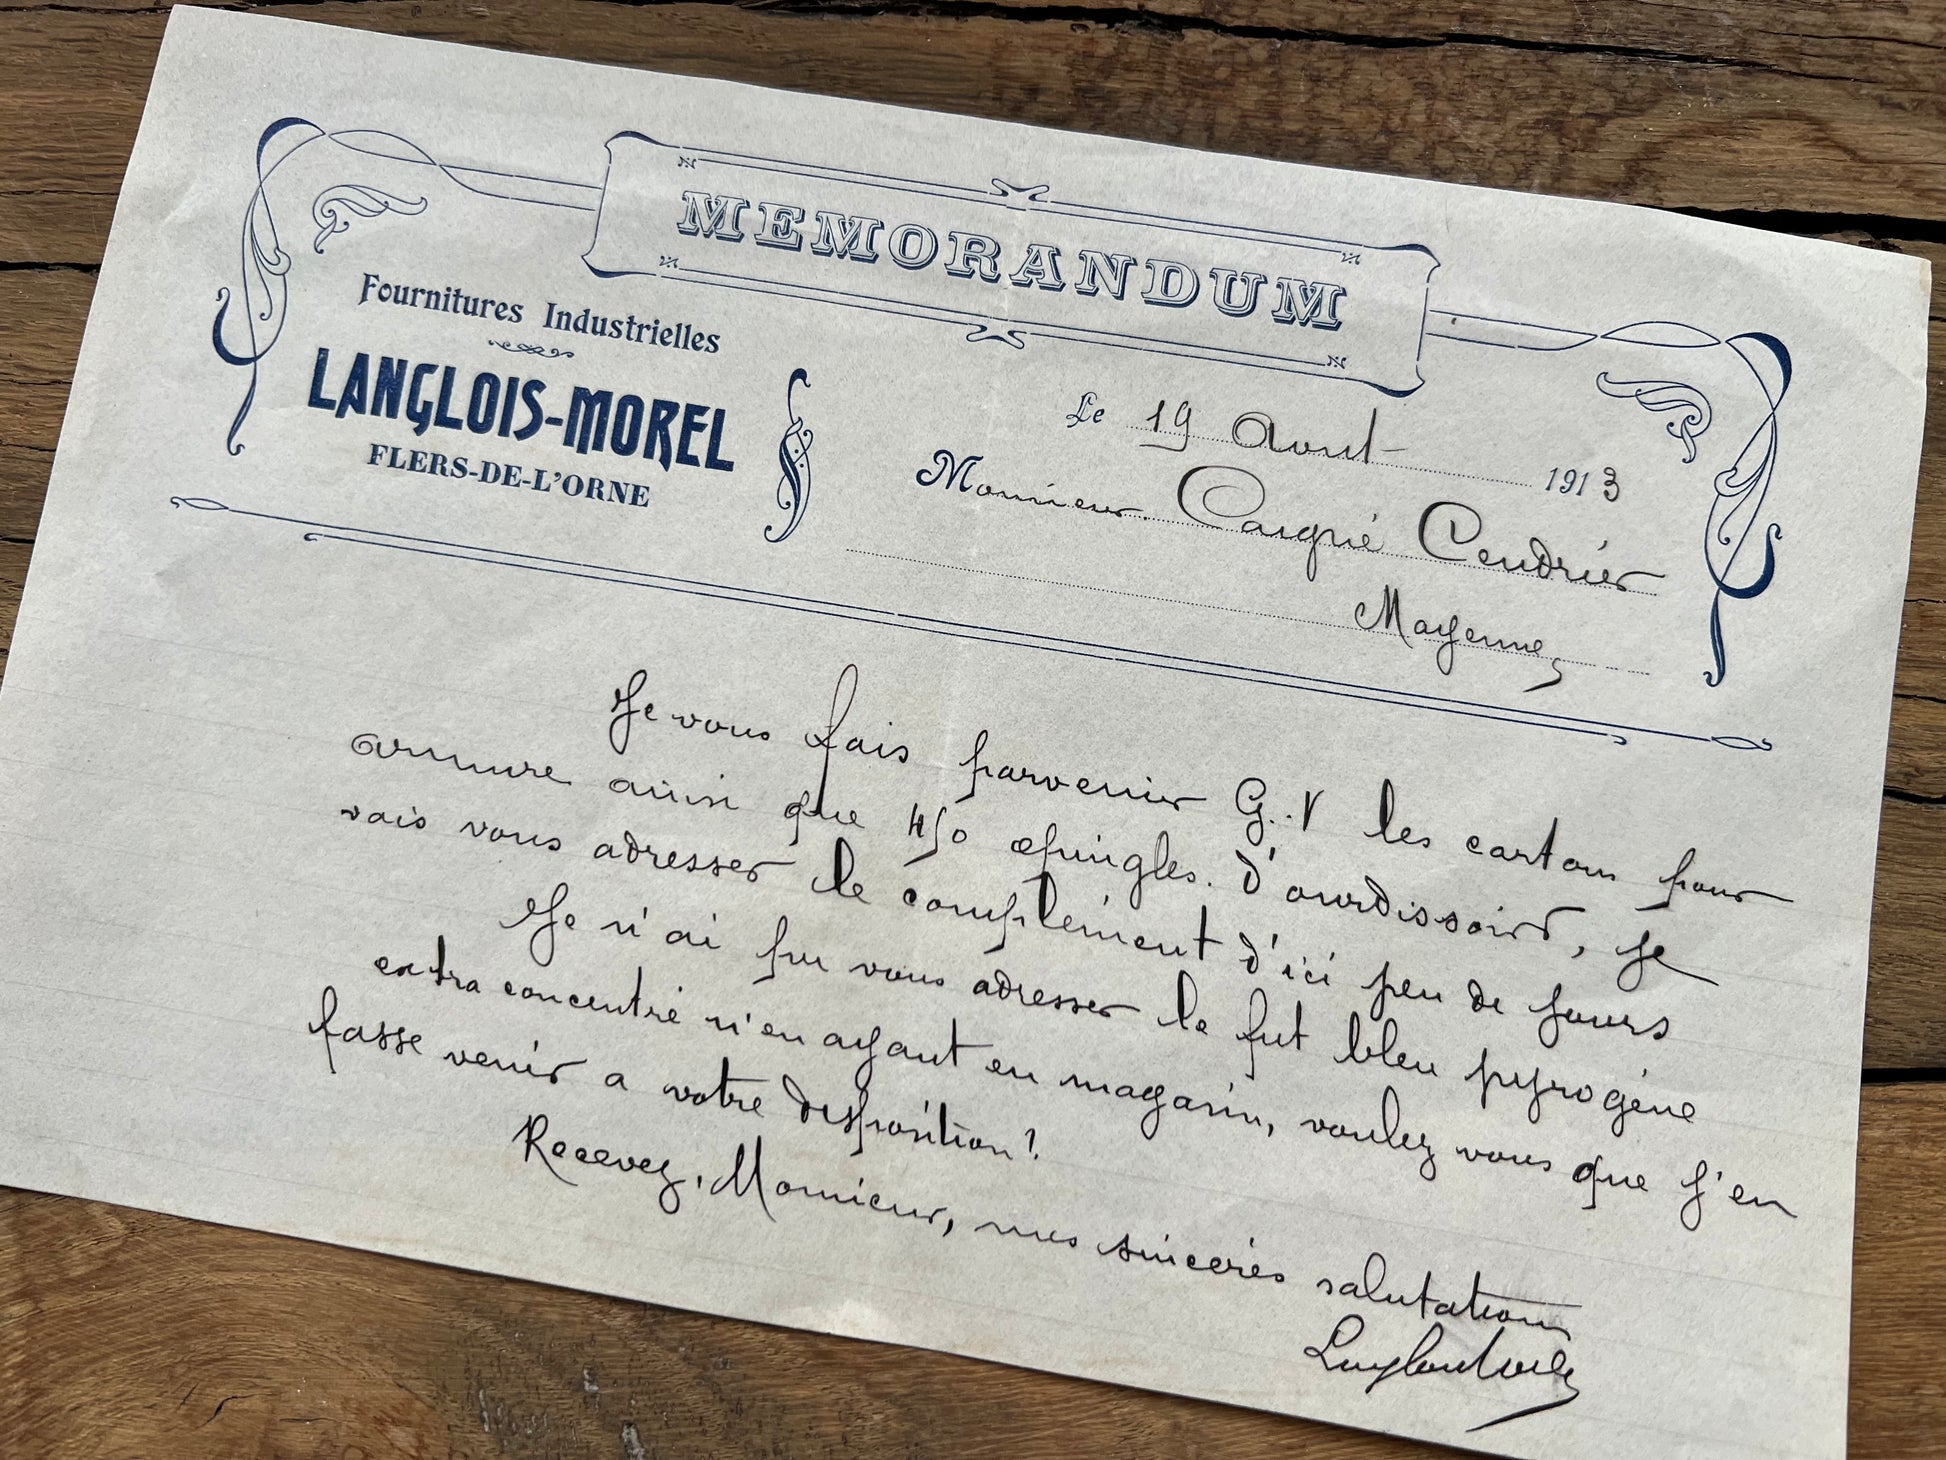 MEMORANDUM
Fournitures Industrielles
LANGLOIS-MOREL
FLERS-DE-L'ORNE
Le 19 Aout 1913
Monsieur Caigné Cendrier
Mayenne
Je vous fais parvenir G.V les cartons pour
armure ainsi que 450 epingles. d'ourdissoirs, je
vais vous adresser le complément d'ici peu de jours
Je n'ai pu vous adresser le fut bleu pyrogène
extra concentré n'en ayant en magasin, voulez vous que j'en
fasse venir a votre disposition?
Recevez, Monsieur, mes sincères salutations